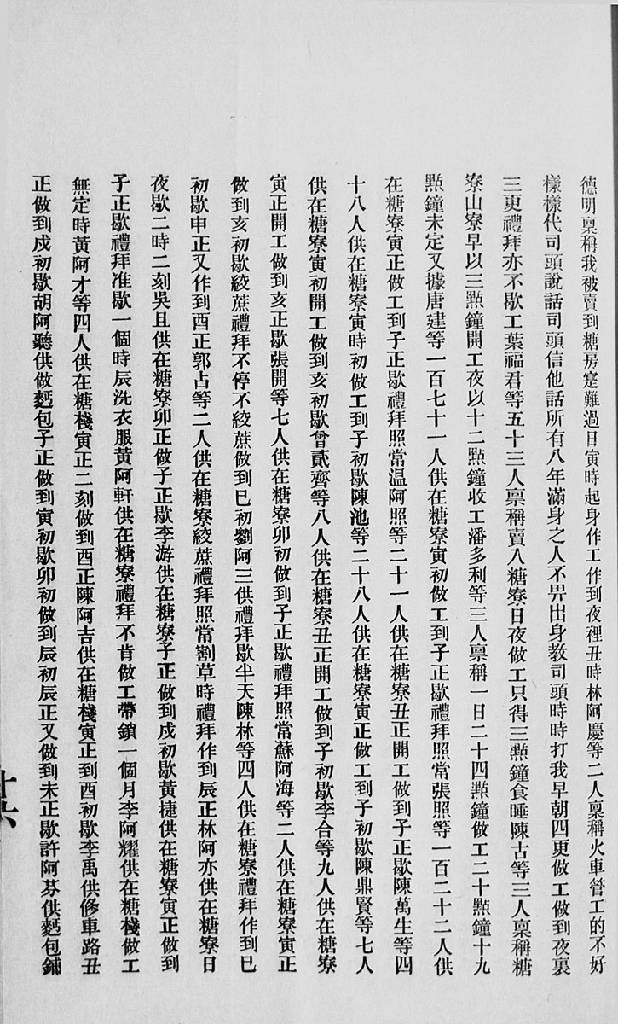 德明稟稱我被賣到糖房寔難過日寅時起身作工作到夜裡丑時林阿慶等二人稟稱火車管工的不好
樣樣代司頭說話司頭信他話所有八年滿身之人不畀出身教司頭時時打我早朝四更做工做到夜裏
三更禮拜亦不歇工葉福君等五十三人稟稱賣入糖寮日夜做工只得三點鐘食睡陳古等三人稟稱糖
寮山寮早以三點鐘開工夜以十二點鐘收工潘多利等三人稟稱一日二十四點鐘做工二十點鐘十九
點鐘未定又據唐建等一百七十一人供在糖寮寅初做工到子正歇禮拜照常張照等一百二十二人供
在糖寮寅正做工到子正歇禮拜照當温阿照等二十一人供在糖寮丑正開工做到子正歇陳萬生等四
十八人供在糖寮寅時初做工到子初歇陳池等二十八人供在糖寮寅正做工到子初歇陳鼎賢等七人
供在糖寮寅初開工做到亥初歇曾貳齊等八人供在糖寮丑正開工做到子初歇李合等九人供在糖寮
寅正開工做到亥正歇張開等七人供在糖寮卯初做到子正歇禮拜照常蘇阿海等二人供在糖寮寅正
做到亥初歇絞蔗禮拜不停不絞蔗做到巳初劉阿三供禮拜歇半天陳林等四人供在糖寮禮拜作到巳
初歇申正又作到酉正郭占等二人供在糖寮絞蔗禮拜照常割草時禮拜作到辰正林阿亦供在糖寮日
夜歇二時二刻吳且供在糖寮卯正做子正歇李游供在糖寮子正做到戍初歇黃捷供在糖寮寅正做到
子正歇禮拜准歇一個時辰洗衣服黃阿軒供在糖寮禮拜不肯做工帶鎖一個月李阿耀供在糖棧做工
無定時黃阿才等四人供在糖棧寅正二刻做到酉正陳阿吉供在糖棧寅正到酉初歇李禹供修車路丑
正做到戍初歇胡阿聽供做麪包子正做到寅初歇卯初做到辰初辰正又做到未正歇許阿芬供麪包鋪
十六